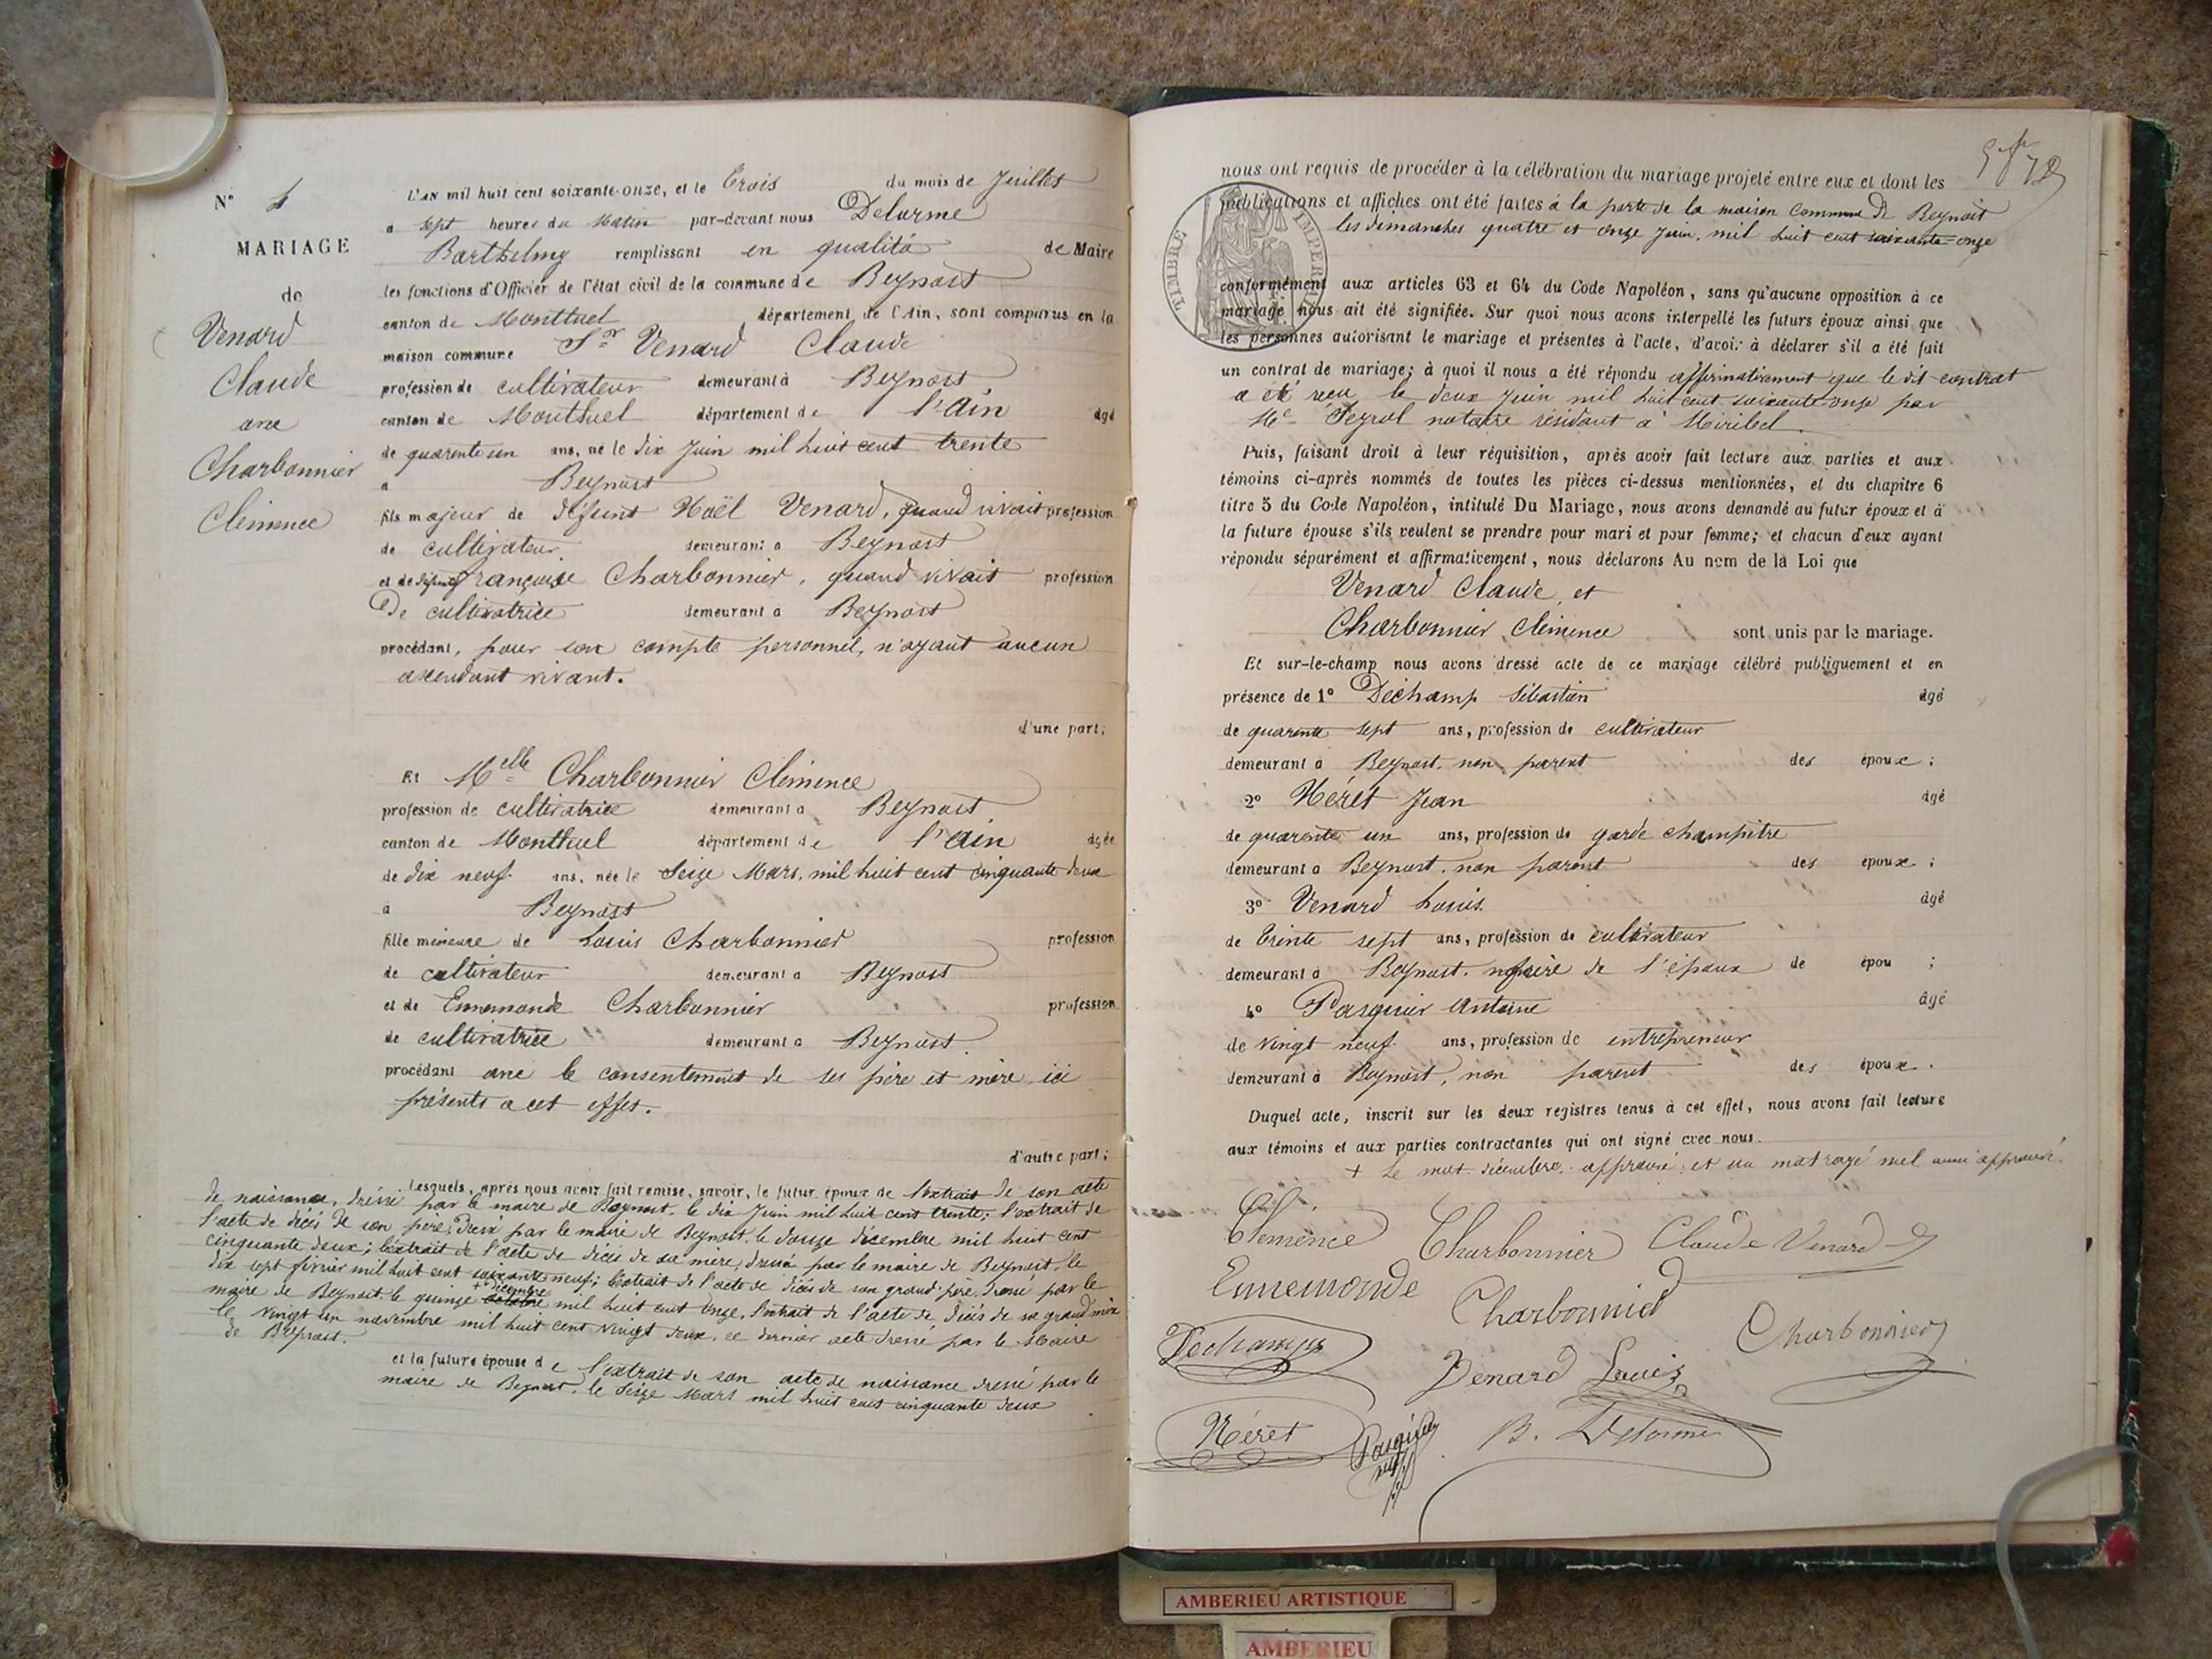 N° 4
MARIAGE
de
Venard
Claude
avec
Charbonnier
Clémence
L'AN mil huit cent soixante-onze, et le trois du mois de Juillet
à sept heures du matin par-devant nous Delorme
Barthélmy remplissant en qualité de Maire
les fonctions d'Officier de l'état civil de la commune de Beynost
canton de Montluel département de l'Ain, sont comparus en la
maison commune Sr Venard Claude
profession de cultivateur demeurant à Beynost,
canton de Montluel département de l'Ain âgé
de quarante un ans, né le dix Juin mil huit cent trente
à Beynost
fils majeur de défunt Noël Venard, quand vivait profession
de cultivateur demeurant à Beynost
et de défunte françoise Charbonnier, quand vivait profession
De cultivatrice demeurant à Beynost
procédant, pour son compte personnel, n'ayant aucun
ascendant vivant.
d'une part;
Et Melle Charbonnier Clémence
profession de cultivatrice demeurant à Beynost
canton de Montluel département de l'Ain âgée
de dix neuf ans, née le Seize Mars, mil huit cent cinquante deux
à Beynost
fille mineure de Louis Charbonnier profession
de cultivateur demeurant à Beynost
et de Ennemonde Charbonnier profession
de cultivatrice demeurant à Beynost.
procédant avec le consentement de ses père et mère ici
présents a cet effet.
d'autre part;
Lesquels, après nous avoir fait remise, savoir, le futur époux de l'extrait de son acte
de naissance, dressé par le maire de Beynost, le dix Juin mil huit cent trente; l'extrait de
l'acte de décès de son père, dressé par le maire de Beynost, le douze décembre mil huit cent
cinquante deux; l'extrait de l'acte de décès de sa mère, dressé par le maire de Beynost, le
dix sept février mil huit cent soixante neuf; l'extrait de l'acte de décès de son grand père, dressé par le
+ décembre
maire de Beynost, le quinze octobre mil huit cent onze, l'extrait de l'acte de décès de sa grand mère
le vingt un novembre mil huit cent vingt deux, ce dernier acte dressé par le Maire
de Beynost.
et la future épouse de l'extrait de son acte de naissance dressé par le
maire de Beynost, le Seize Mars mil huit cent cinquante deux
nous ont requis de procéder à la célébration du mariage projeté entre eux et dont les
publications et affiches ont été faites à la porte de la maison commune De Beynost
les dimanches quatre et onze Juin, mil huit cent soixante-onze
TIMBRE IMPERIAL
conformément aux articles 63 et 64 du Code Napoléon, sans qu'aucune opposition à ce
mariage nous ait été signifiée. Sur quoi nous avons interpellé les futurs époux ainsi que
les personnes autorisant le mariage et présentes à l'acte, d'avoir à déclarer s'il a été fait
un contrat de mariage; à quoi il nous a été répondu affirmativement que le dit contrat
a été reçu le deux Juin mil huit cent soixante-onze par
Me Peyrol notaire résidant à Miribel.
Puis, faisant droit à leur réquisition, après avoir fait lecture aux parties et aux
témoins ci-après nommés de toutes les pièces ci-dessus mentionnées, et du chapitre 6
titre 5 du Code Napoléon, intitulé Du Mariage, nous avons demandé au futur époux et à
la future épouse s'ils veulent se prendre pour mari et pour femme; et chacun d'eux ayant
répondu séparément et affirmativement, nous déclarons Au nom de la Loi que
Venard Claude, et
Charbonnier Clémence sont unis par le mariage.
Et sur-le-champ nous avons dressé acte de ce mariage célébré publiquement et en
présence de 1° Déchamp Sébastien âgé
de quarante sept ans, profession de cultivateur
demeurant à Beynost, non parent des époux;
2° Néret Jean âgé
de quarante un ans, profession de garde champêtre
demeurant à Beynost, non parent des époux;
3° Venard Louis âgé
de trente sept ans, profession de cultivateur
demeurant à Beynost, frère de l'époux de épou ;
4° Pasquier Antoine âgé
de vingt neuf ans, profession de entrepreneur
demeurant à Beynost, non parent des époux.
Duquel acte, inscrit sur les deux registres tenus à cet effet, nous avons fait lecture
aux témoins et aux parties contractantes qui ont signé avec nous.
+ Le mot décembre approuvé et un mot rayé nul aussi approuvé.
Clemence Charbonnier Claude Venard
Ennemonde Charbonnier
Dechamps Venard Louis Charbonnier
Néret Pasquier B. Delorme
AMBERIEU ARTISTIQUE
AMBERIEU